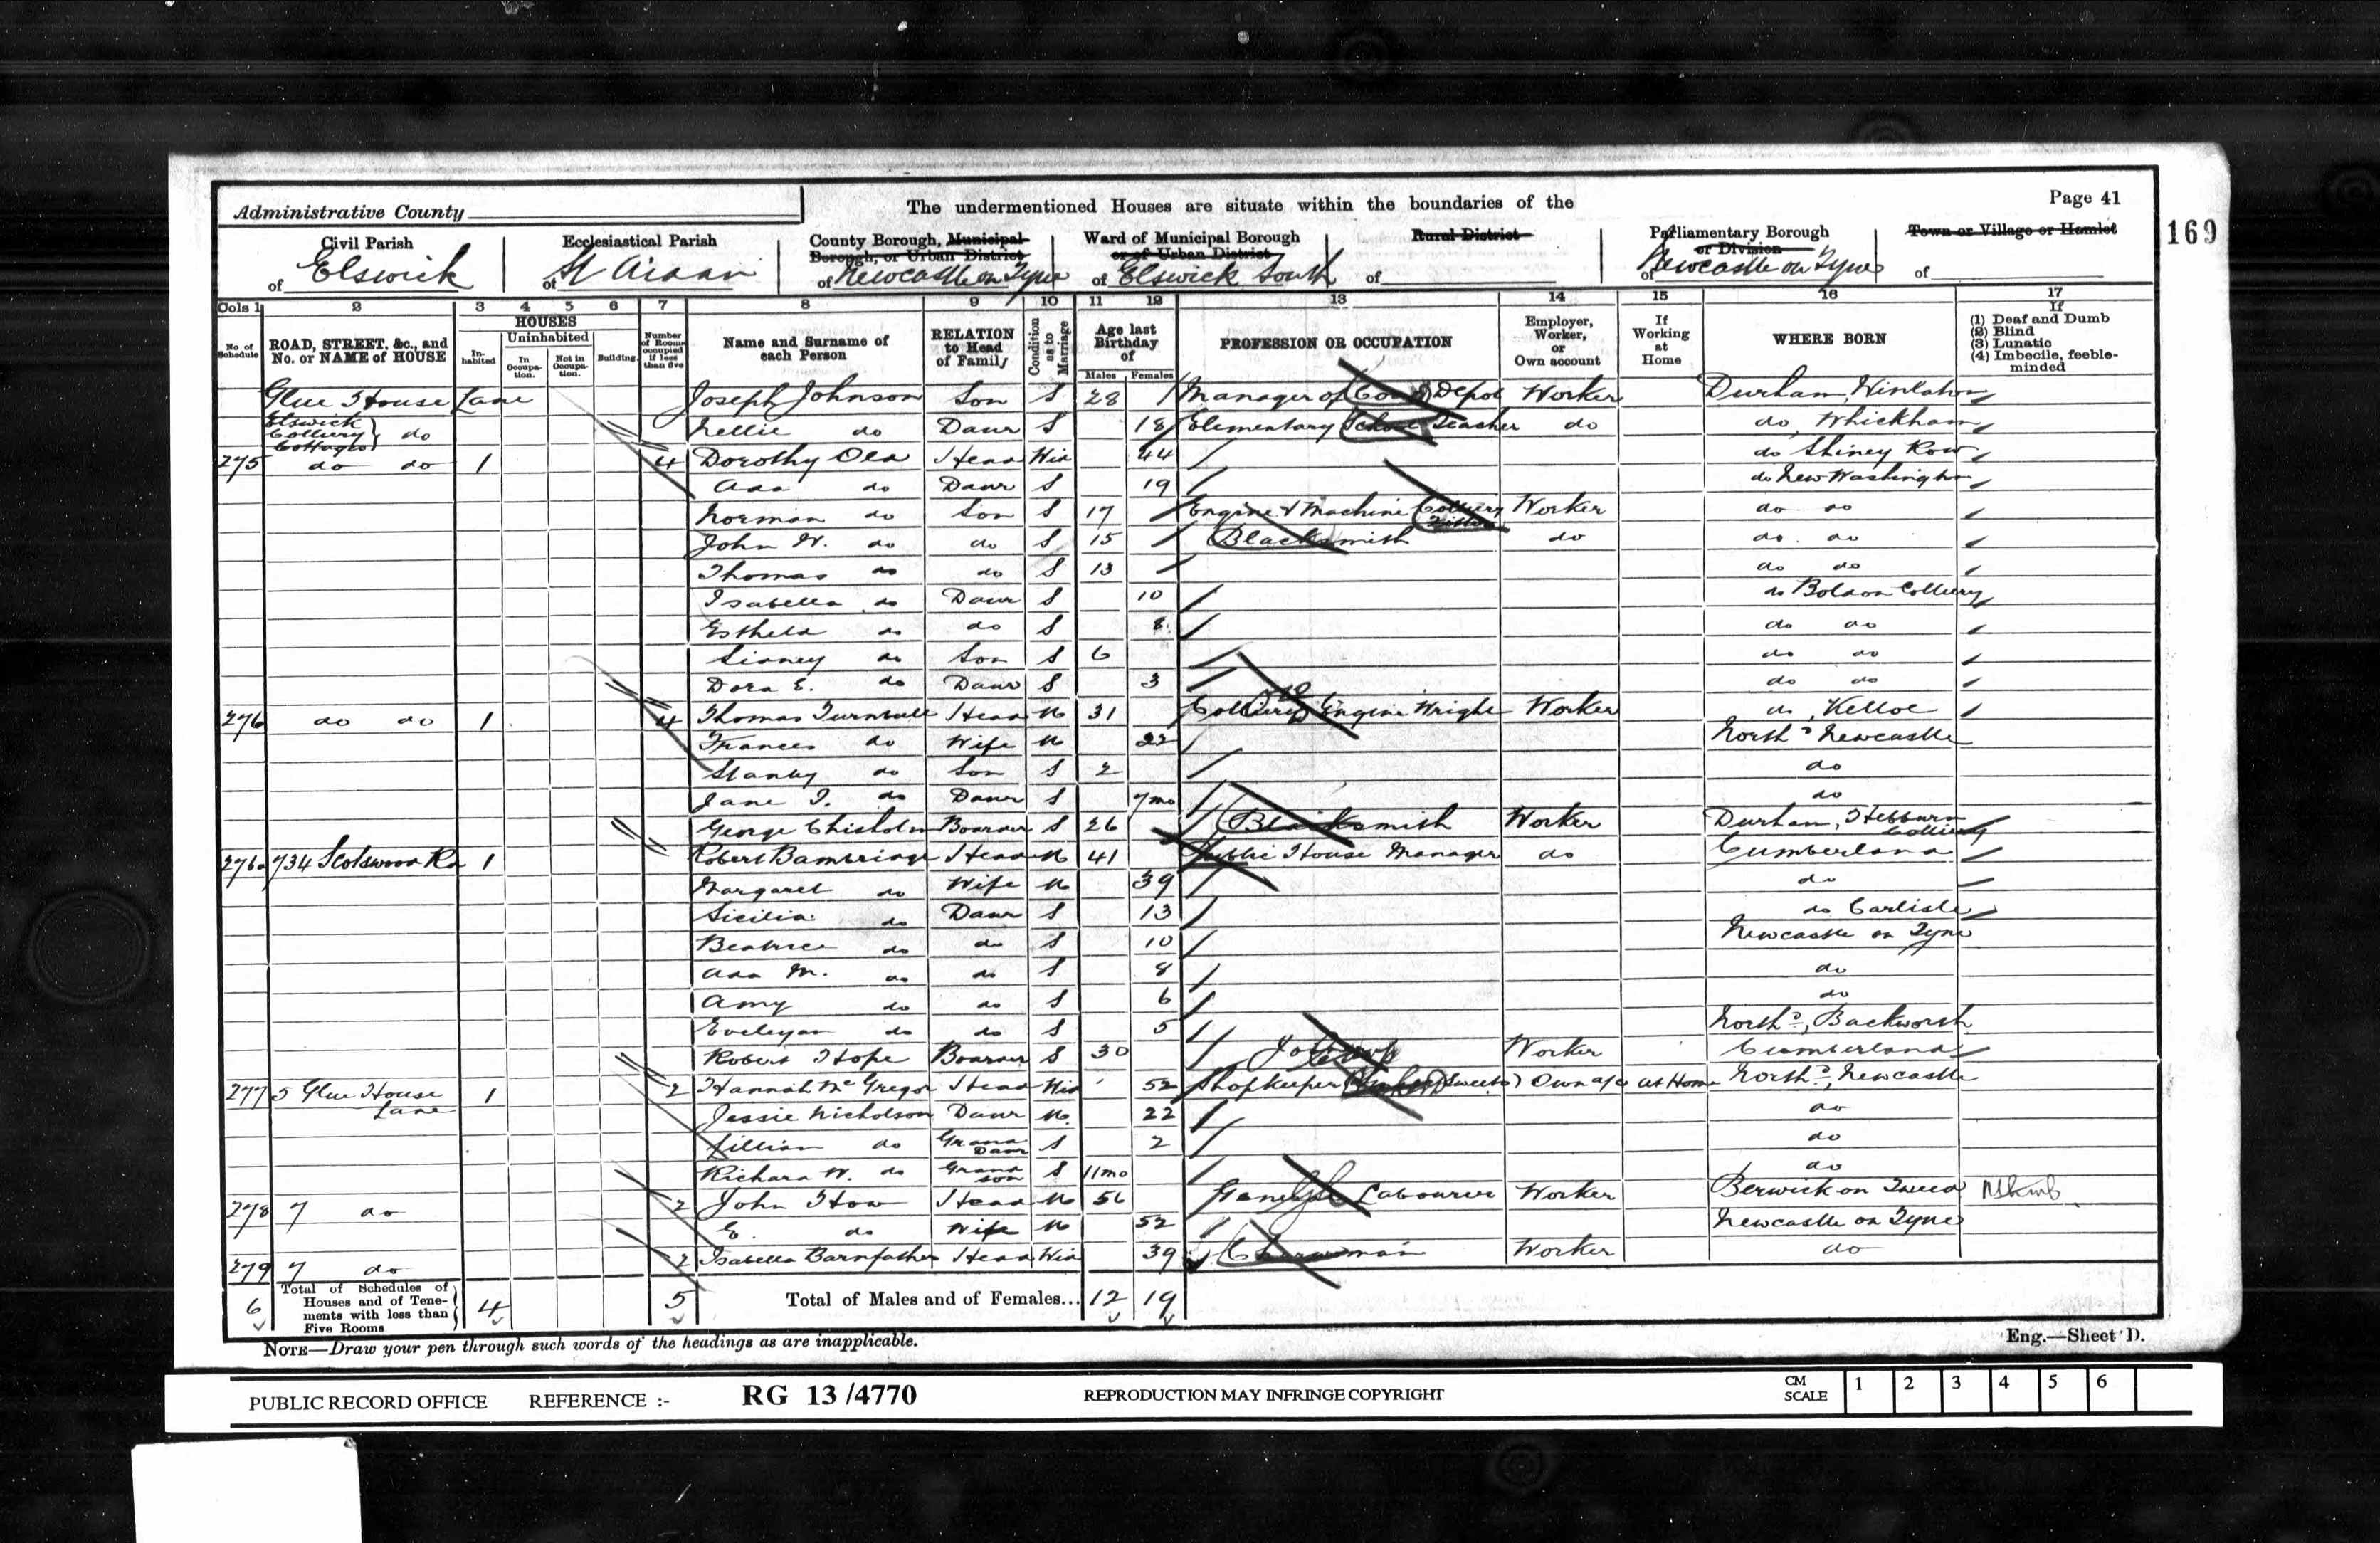 Administrative County
The undermentioned Houses are situate within the boundaries of the
Page 41
169
Civil Parish of Elswick
Ecclesiastical Parish of St Aidan
County Borough, Municipal Borough, or Urban District of Newcastle on Tyne
Ward of Municipal Borough or of Urban District of Elswick South
Rural District of
Parliamentary Borough or Division of Newcastle on Tyne
Town or Village or Hamlet of
Cols 1 2 3 4 5 6 7 8 9 10 11 12 13 14 15 16 17
No. of Schedule
ROAD, STREET, &c., and No. or NAME of HOUSE
HOUSES
Inhabited
Uninhabited
In Occupation.
Not in Occupation.
Building.
Number of Rooms occupied if less than five
Name and Surname of each Person
RELATION to Head of Family
Condition as to Marriage
Age last Birthday of
Males Females
PROFESSION OR OCCUPATION
Employer, Worker, or Own account
If Working at Home
WHERE BORN
If
(1) Deaf and Dumb
(2) Blind
(3) Lunatic
(4) Imbecile, feeble-minded
Glue House Lane Joseph Johnson Son S 28 Manager of Depot Worker Durham, Winlaton
Elswick Colliery Cottages do Nellie do Daur S 18 Elementary School Teacher do do, Whickham
275 do do 1 4 Dorothy Head Wid 44 do Shiney Row
Ada do Daur S 19 do New Washington
Norman do Son S 17 Engine & Machine Colliery Worker do do
John W. do do S 15 Blacksmith do do do
Thomas do do S 13 do do
Isabella do Daur S 10 do Boldon Colliery
do do S 8 do do
Sidney do Son S 6 do do
Dora E. do Daur S 3 do do
276 do do 1 4 Thomas Turnbull Head M 31 Colliery Engine Wright Worker do, Kelloe
Frances do Wife M 22 Northd Newcastle
Stanley do Son S 2 do
Jane I. do Daur S 7mo do
George Chisholm Boarder S 26 Blacksmith Worker Durham, Hebburn Colliery
276a 734 Scotswood Rd 1 Robert Bambridge Head M 41 Public House Manager do Cumberland
Margaret do Wife M 39 do
Sicilia do Daur S 13 do Carlisle
Beatrice do do S 10 Newcastle on Tyne
Ada M. do do S 8 do
Amy do do S 6 do
Eveleyn do do S 5 Northd, Backworth
Robert Hope Boarder S 30 Worker Cumberland
277 5 Glue House Lane 1 2 Hannah Mc Gregor Head Wid 52 Shopkeeper (Sweets) Own a/c at Home Northd, Newcastle
Jessie Nicholson Daur M. 22 do
Lillian do Grand Daur S 2 do
Richard W. do Grand son S 11mo do
278 7 do 2 John How Head M 56 Labourer Worker Berwick on Tweed
E. do Wife M 52 Newcastle on Tyne
279 7 do 2 Isabella Barnfather Head Wid 39 Worker do
6 Total of Schedules of Houses and of Tenements with less than Five Rooms 4 5 Total of Males and of Females... 12 19
NOTE—Draw your pen through such words of the headings as are inapplicable.
Eng.—Sheet D.
PUBLIC RECORD OFFICE REFERENCE :- RG 13 /4770 REPRODUCTION MAY INFRINGE COPYRIGHT CM SCALE 1 2 3 4 5 6